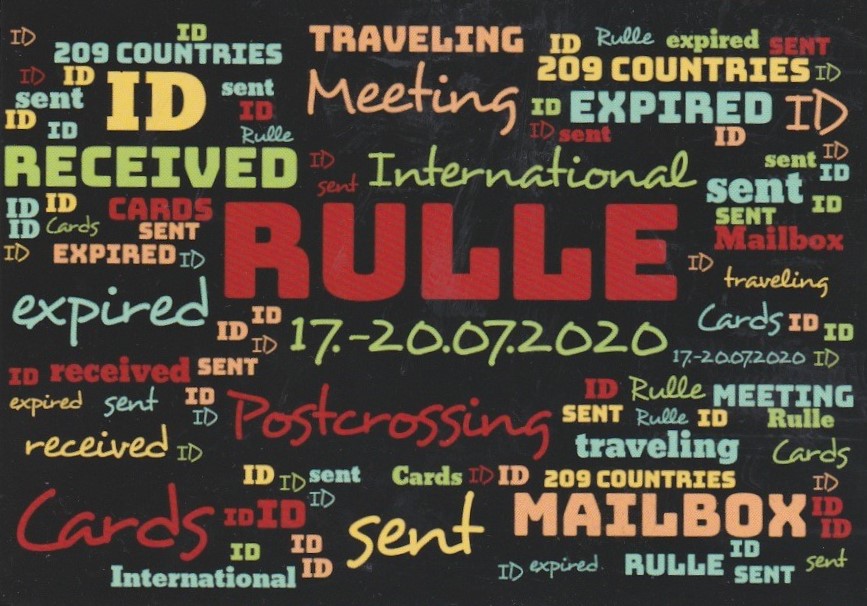 ID ID TRAVELING ID Rulle expired SENT
209 COUNTRIES 209 COUNTRIES ID
ID ID ID sent Meeting
sent ID ID EXPIRED ID
ID ID Rulle ID sent ID
RECEIVED ID International sent ID ID
sent sent
ID ID CARDS RULLE SENT ID
ID Cards SENT Mailbox
ID EXPIRED ID ID traveling
expired ID ID Cards ID ID
ID 17.-20.07.2020 17.-20.07.2020 ID
ID received SENT
expired sent ID Postcrossing ID Rulle MEETING
ID SENT Rulle ID Rulle
received ID traveling Cards
ID ID sent Cards ID ID 209 COUNTRIES ID
Cards ID ID ID sent MAILBOX ID
ID
ID ID RULLE ID
International ID ID expired SENT sent